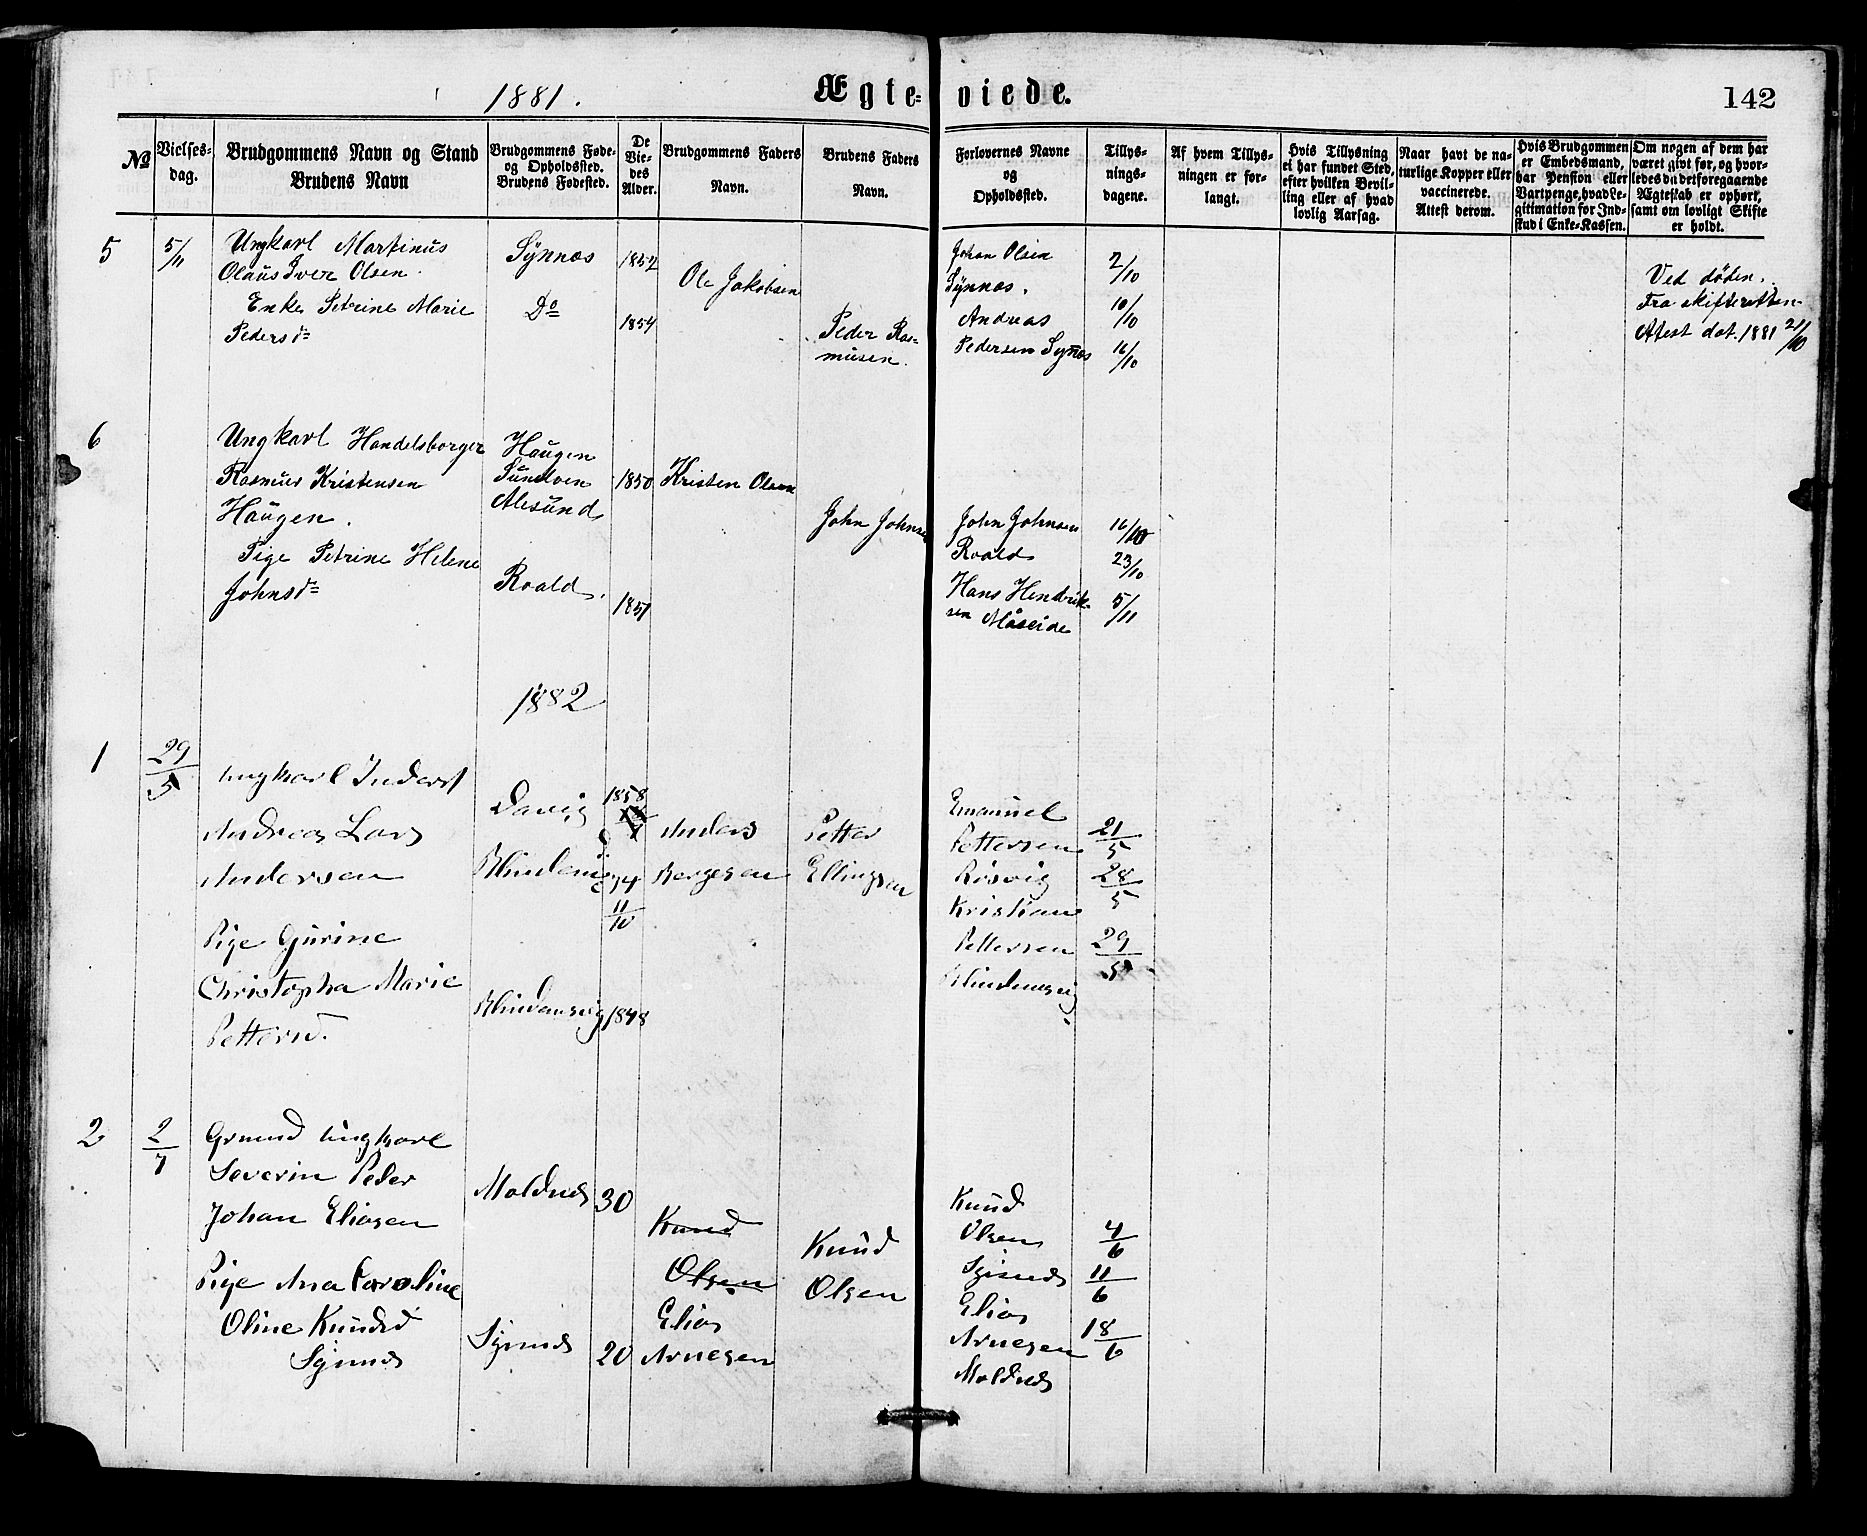 1881.
Ægte-viede.
142
№
Vielses-dag.
Brudgommens Navn og Stand
Brudens Navn
Brudgommens Føde- og Opholdssted.
Brudens Fødested.
De Vie-des Alder.
Brudgommens Faders Navn.
Brudens Faders Navn.
Forlovernes Navne og Opholdssted.
Tillys-nings-dagene.
Af hvem Tillys-ningen er for-langt.
Hvis Tillysning ei har fundet Sted, efter hvilken Bevil-ling eller af hvad lovlig Aarsag.
Naar havt de na-turlige Kopper eller vaccinerede.
Attest derom.
Hvis Brudgommen er Embedsmand, har Pension eller Vartpenge, hvad Le-gitimation for Ind-skud i Enke-Kassen.
Om nogen af dem har været gift før, og hvor-ledes da det foregaaende Ægteskab er ophørt, samt om lovligt Skifte er holdt.
5
5/11
Ungkarl Martinus
Olaus Iver Olsen.
Enke Petrine Marie
Pedersd=
Synnæs
Do
1852
1854
Ole Jakobsen
Peder Ras-
musen.
Johan Olsen
Synnæs.
Andreas
Pedersen Synæs
2/10
10/10
16/10
Ved døden.
Fra skifteretten
Attest dat. 1881 21/10
6
Ungkarl Handelsborger
Rasmus Kristensen
Haugen.
Pige Petrine Helene
Johnsd=
Haugen
Sundven
Alesund
Roald.
1850
1851
Kristen Olsen
John Johnsen
John Johnsen
Roald
Hans Hendrik-
sen Måseide
16/10
23/10
5/11
1882
1
29/5
ungkarl Inderst
Andreas Lars
Andersen
Pige Gurine
Christopha Marie
Petterd.
Davig
Blindemsvig
1858
11/10
1848
Anders
Bergesen
Petter
Ellingsen
Emanuel
Pettersen
Røsvig
Kristian
Pettersen
Blindemsvig
21/5
28/5
29/5
2
2/7
Grmnd ungkarl
Severin Peder
Johan Eliasen
Pige Ana Caroline
Oline Knudsd
Synnes
Moldnes
Synnes
30
20
Knud
Olsen
Elias
Arnesen
Knud
Olsen
Knud
Olsen
Synnes
Elias
Arnesen
Moldnes
4/6
11/6
18/6